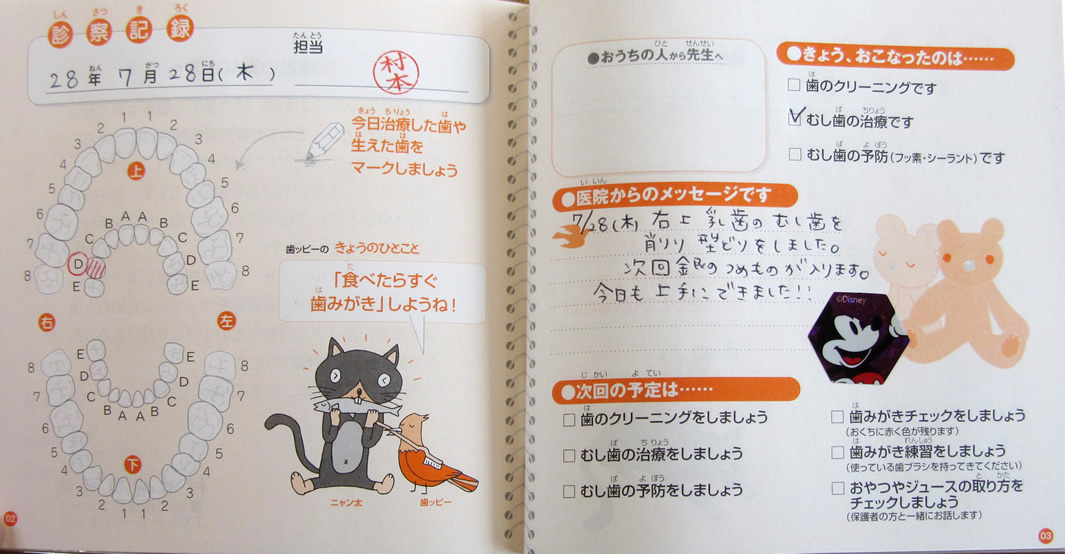 診察記録
しん さつ き ろく
担当
たん とう
28年 7月 28日(木)
ねん がつ にち
村本
今日治療した歯や
きょう ちりょう は
生えた歯を
は は
マークしましょう
1 1
2 2
3 3
4 4
5 5
6 6
7 7
8 8
上
A A
B B
C C
D D
E E
右 左
E E
D D
C C
B A A B
8 8
7 7
6 6
5 5
4 4
3 3
2 1 1 2
下
歯ッピーの きょうのひとこと
「食べたらすぐ
た
歯みがき」しようね!
は
ニャン太 歯ッピー
02
●おうちの人から先生へ
ひと せんせい
●きょう、おこなったのは……
歯のクリーニングです
は
むし歯の治療です
ば ちりょう
むし歯の予防(フッ素・シーラント)です
ば よぼう
●医院からのメッセージです
いいん
7/28(木) 右上 乳歯のむし歯を
削り 型どりをしました。
次回 銀のつめものが入ります。
今日も上手にできました!!
©Disney
●次回の予定は……
じかい よてい
歯のクリーニングをしましょう
は
むし歯の治療をしましょう
ば ちりょう
むし歯の予防をしましょう
ば よぼう
歯みがきチェックをしましょう
は
(おくちに赤く色が残ります)
歯みがき練習をしましょう
は れんしゅう
(使っている歯ブラシを持ってきてください)
おやつやジュースの取り方を
と かた
チェックしましょう
(保護者の方と一緒にお話します)
03